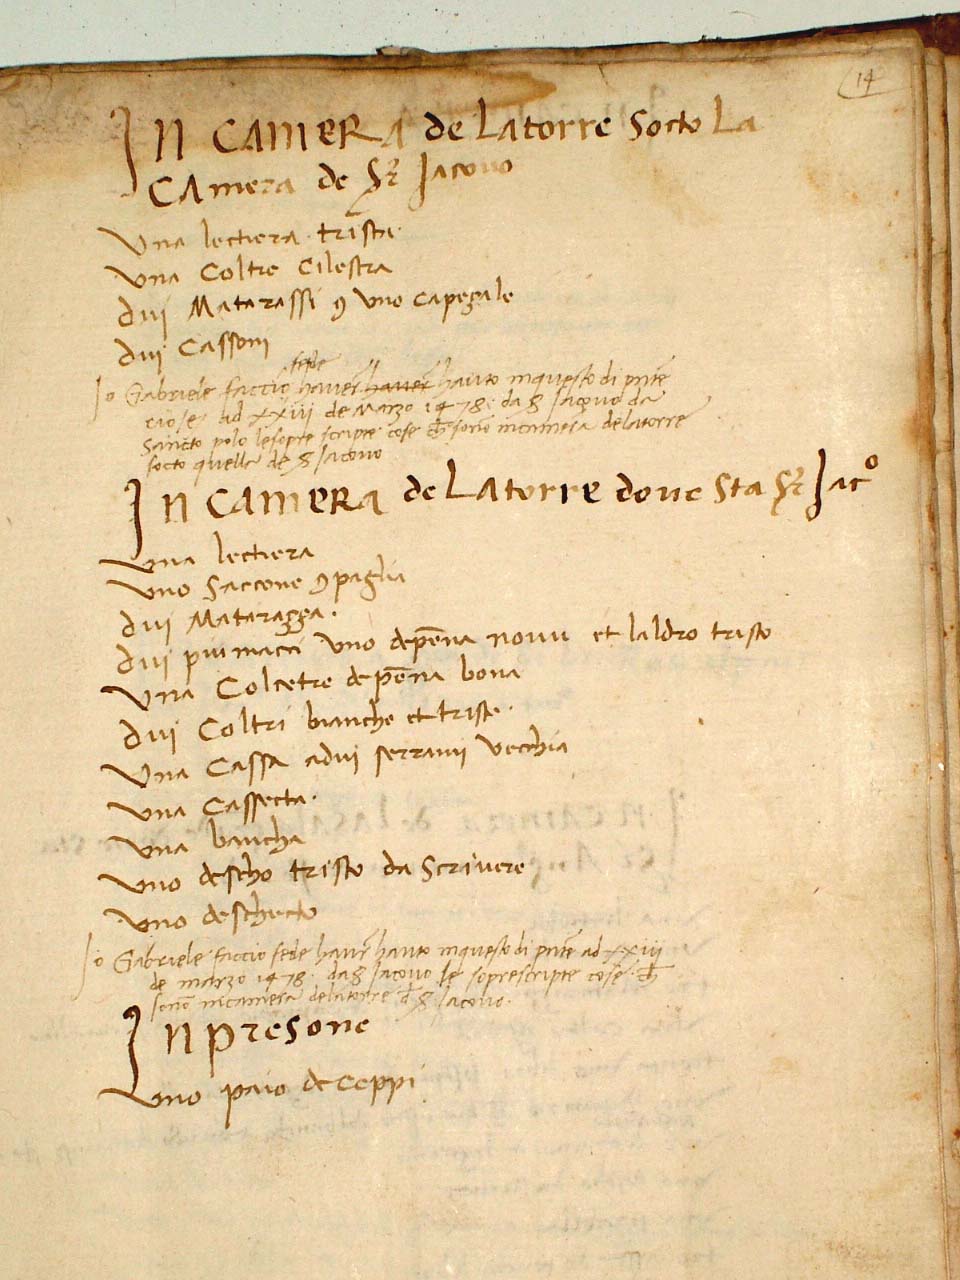 14
In CAMERA de Latorre Socto La
CAmera de Sr Jacovo
Una lectiera trista
Una Coltre Cilestra
Dui Matarassi 9 uno capezale
Dui Cassoni
fede
Io Gabriele faccio haver haver havto in questo di pnte
ad xxiii de Marzo 1478 da S Jacovo da
Sancto polo le sopre scripte cose ch sono in camera de latorre
socto quella de S Jacovo
In CAMERA de Latorre dove Sta Sr Jaco
Una lectiera
Uno Saccone 9 paglia
Dui Mataraza
Dui piumacci uno de pena novu et laldro tristo
Una Colcetre de pena bona
Dui Coltri bianche et triste
Una Cassa a dui serrami vecchia
Una Cassecta
Una bancha
Uno descho tristo da Scrivere
Uno deschecto
Io Gabriele faccio fede haver havto in questo di pnte ad xxiii
de marzo 1478 da S Jacovo le soprescripte cose ch
sono in camera de latorre d S Jacovo
In presone
Uno paio de Ceppi